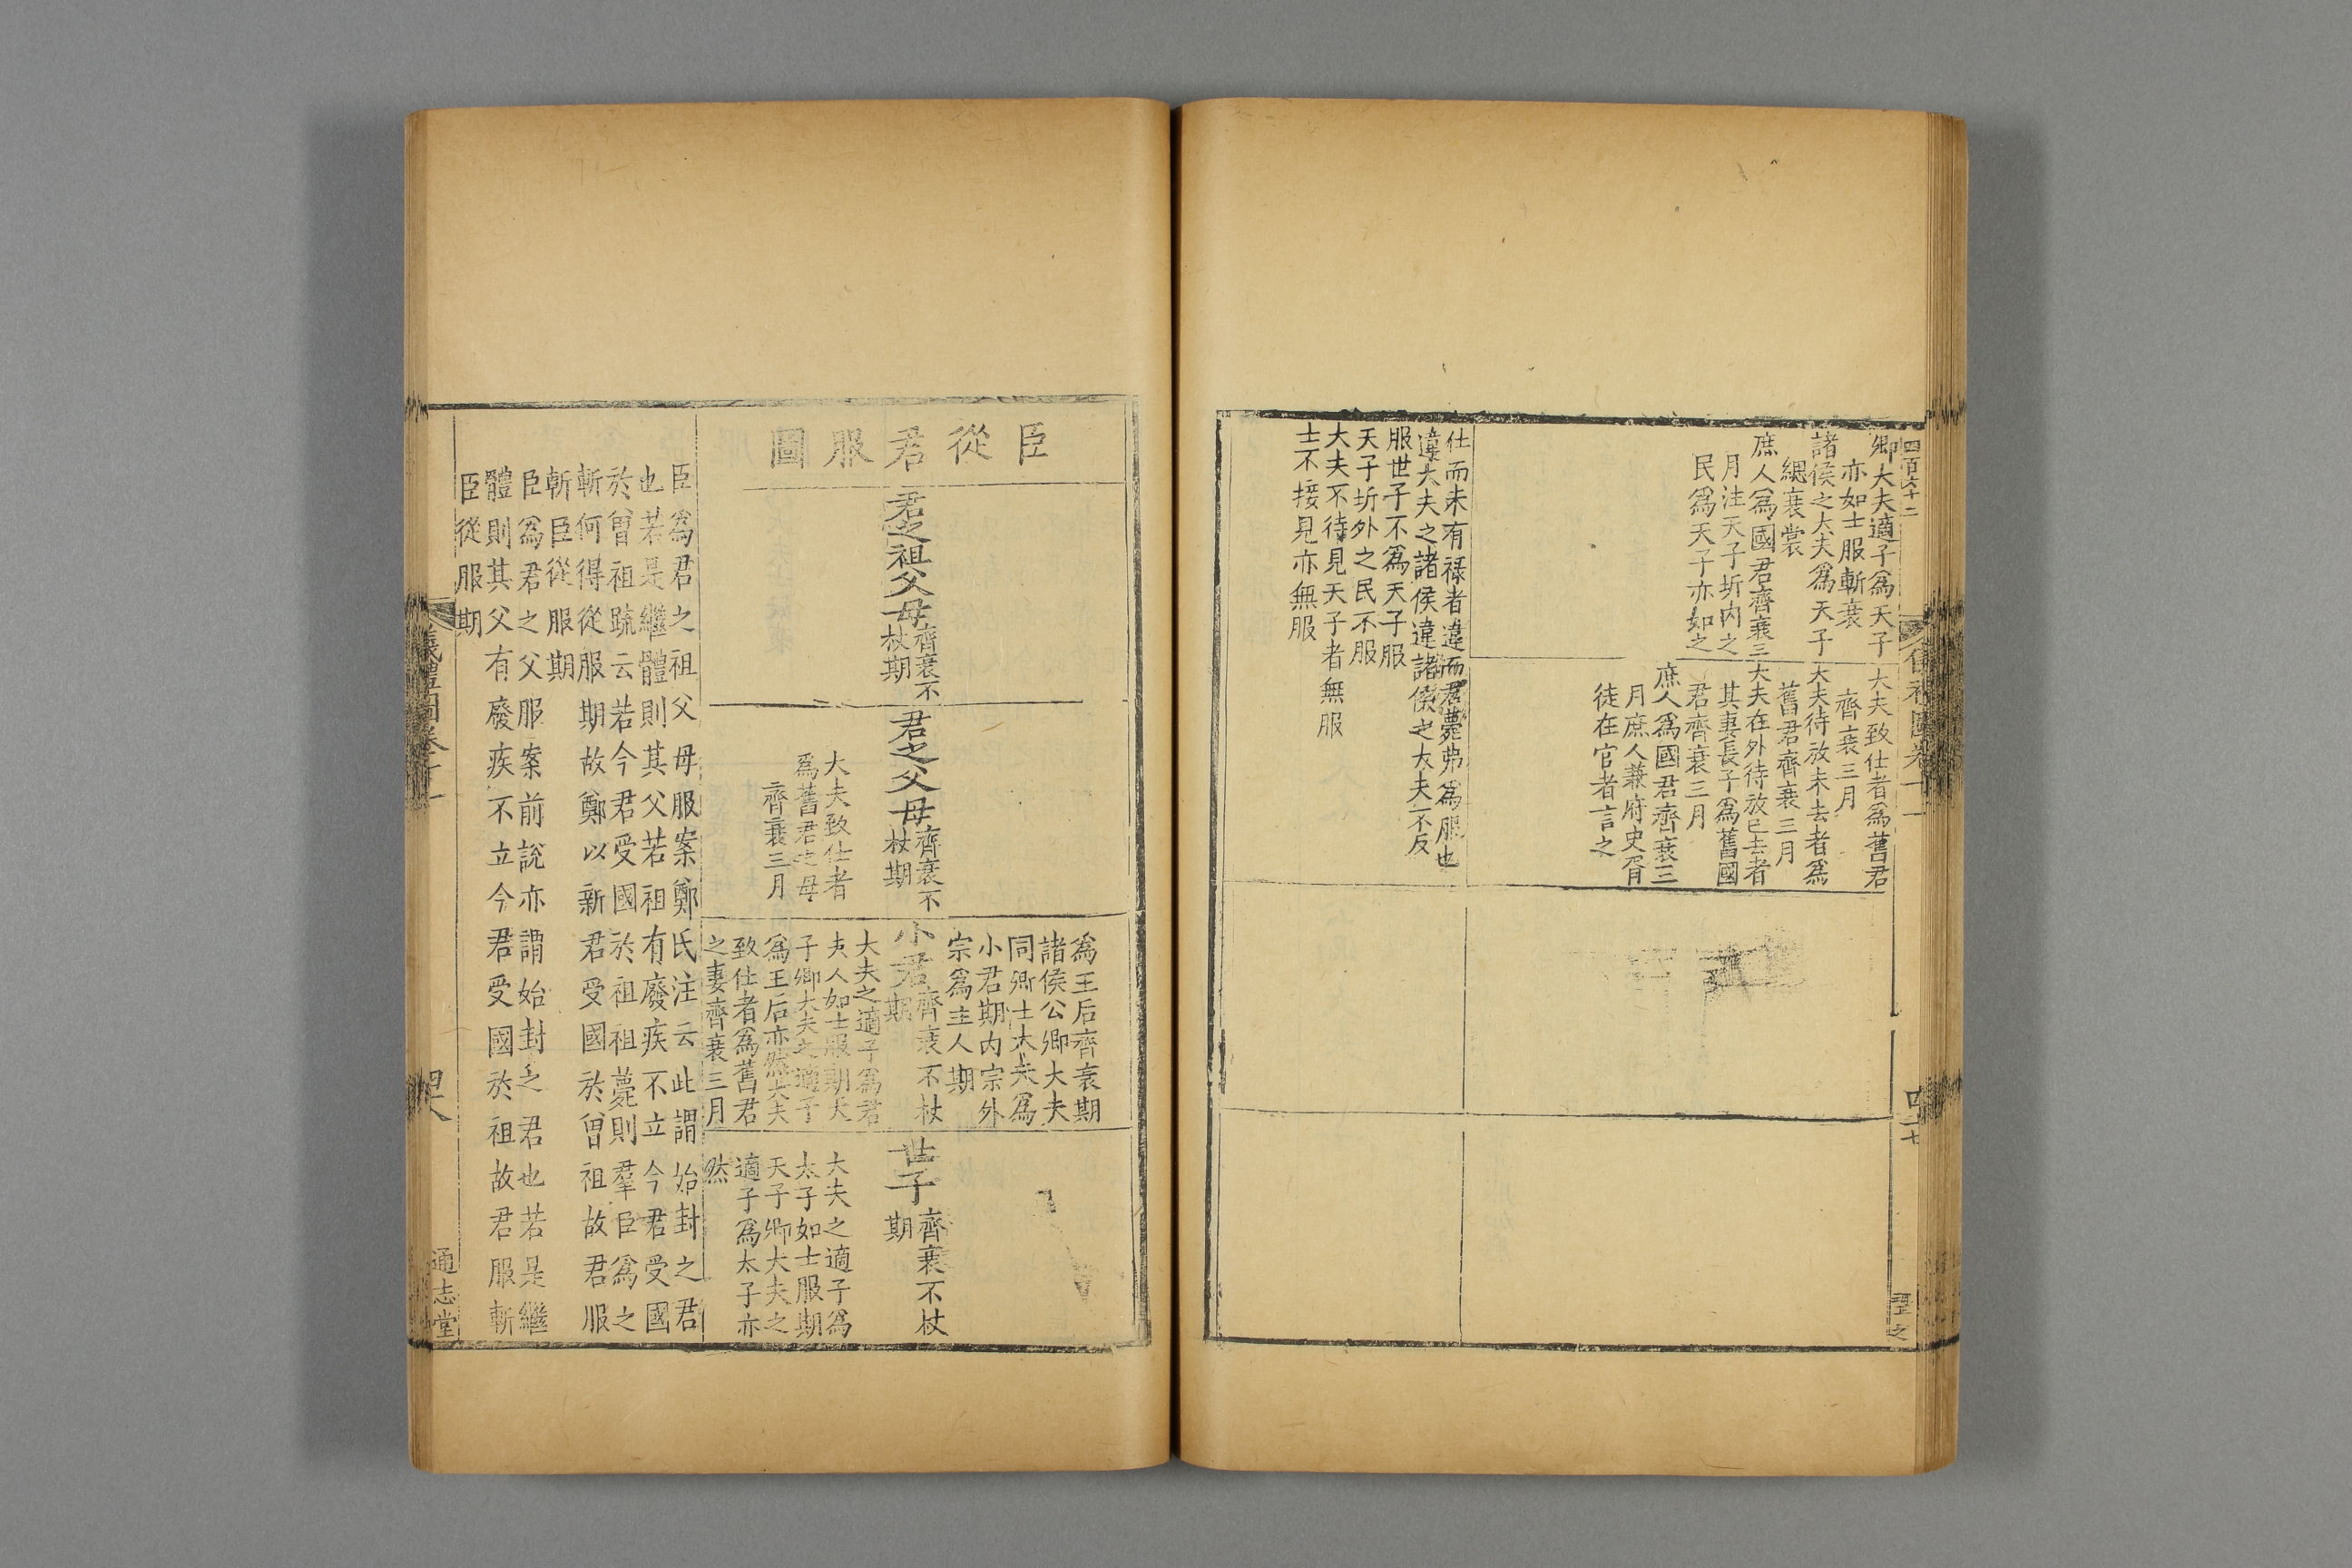 四百六十二
卿大夫適子爲天子
亦如士服斬衰
諸侯之大夫爲天子
繐衰裳
庶人爲國君齊衰三
月注天子圻内之
民爲天子亦如之
大夫致仕者爲舊君
齊衰三月
大夫待放未去者爲
舊君齊衰三月
大夫在外待放已去者
其妻長子爲舊國
君齊衰三月
庶人爲國君齊衰三
月庶人兼府史胥
徒在官者言之
仕而未有禄者違而君薨弗爲服也
違大夫之諸侯違諸侯之大夫不反
服世子不爲天子服
天子圻外之民不服
大夫不待見天子者無服
士不接見亦無服
四十七
臣從君服圖
君之祖父母齊衰不
杖期
君之父母齊衰不
杖期
大夫致仕者
爲舊君之母
齊衰三月
爲王后齊衰期
諸侯公卿大夫
同卿士大夫爲
小君期内宗外
宗爲主人期
小君齊衰不杖
期
大夫之適子爲君
夫人如士服期天
子卿大夫之適子
爲王后亦然大夫
致仕者爲舊君
之妻齊衰三月
世子齊衰不杖
期
大夫之適子爲
太子如士服期
天子卿大夫之
適子爲太子亦
然
臣爲君之祖父母服案鄭氏注云此謂始封之君
也若是繼體則其父若祖有廢疾不立今君受國
於曾祖䟽云若今君受國於祖祖薨則羣臣爲之
斬何得從服期故鄭以新君受國於曾祖故君服
斬臣從服期
臣爲君之父服案前說亦謂始封之君也若是繼
體則其父有廢疾不立今君受國於祖故君服斬
臣從服期
儀禮圖卷十一
四十八
通志堂